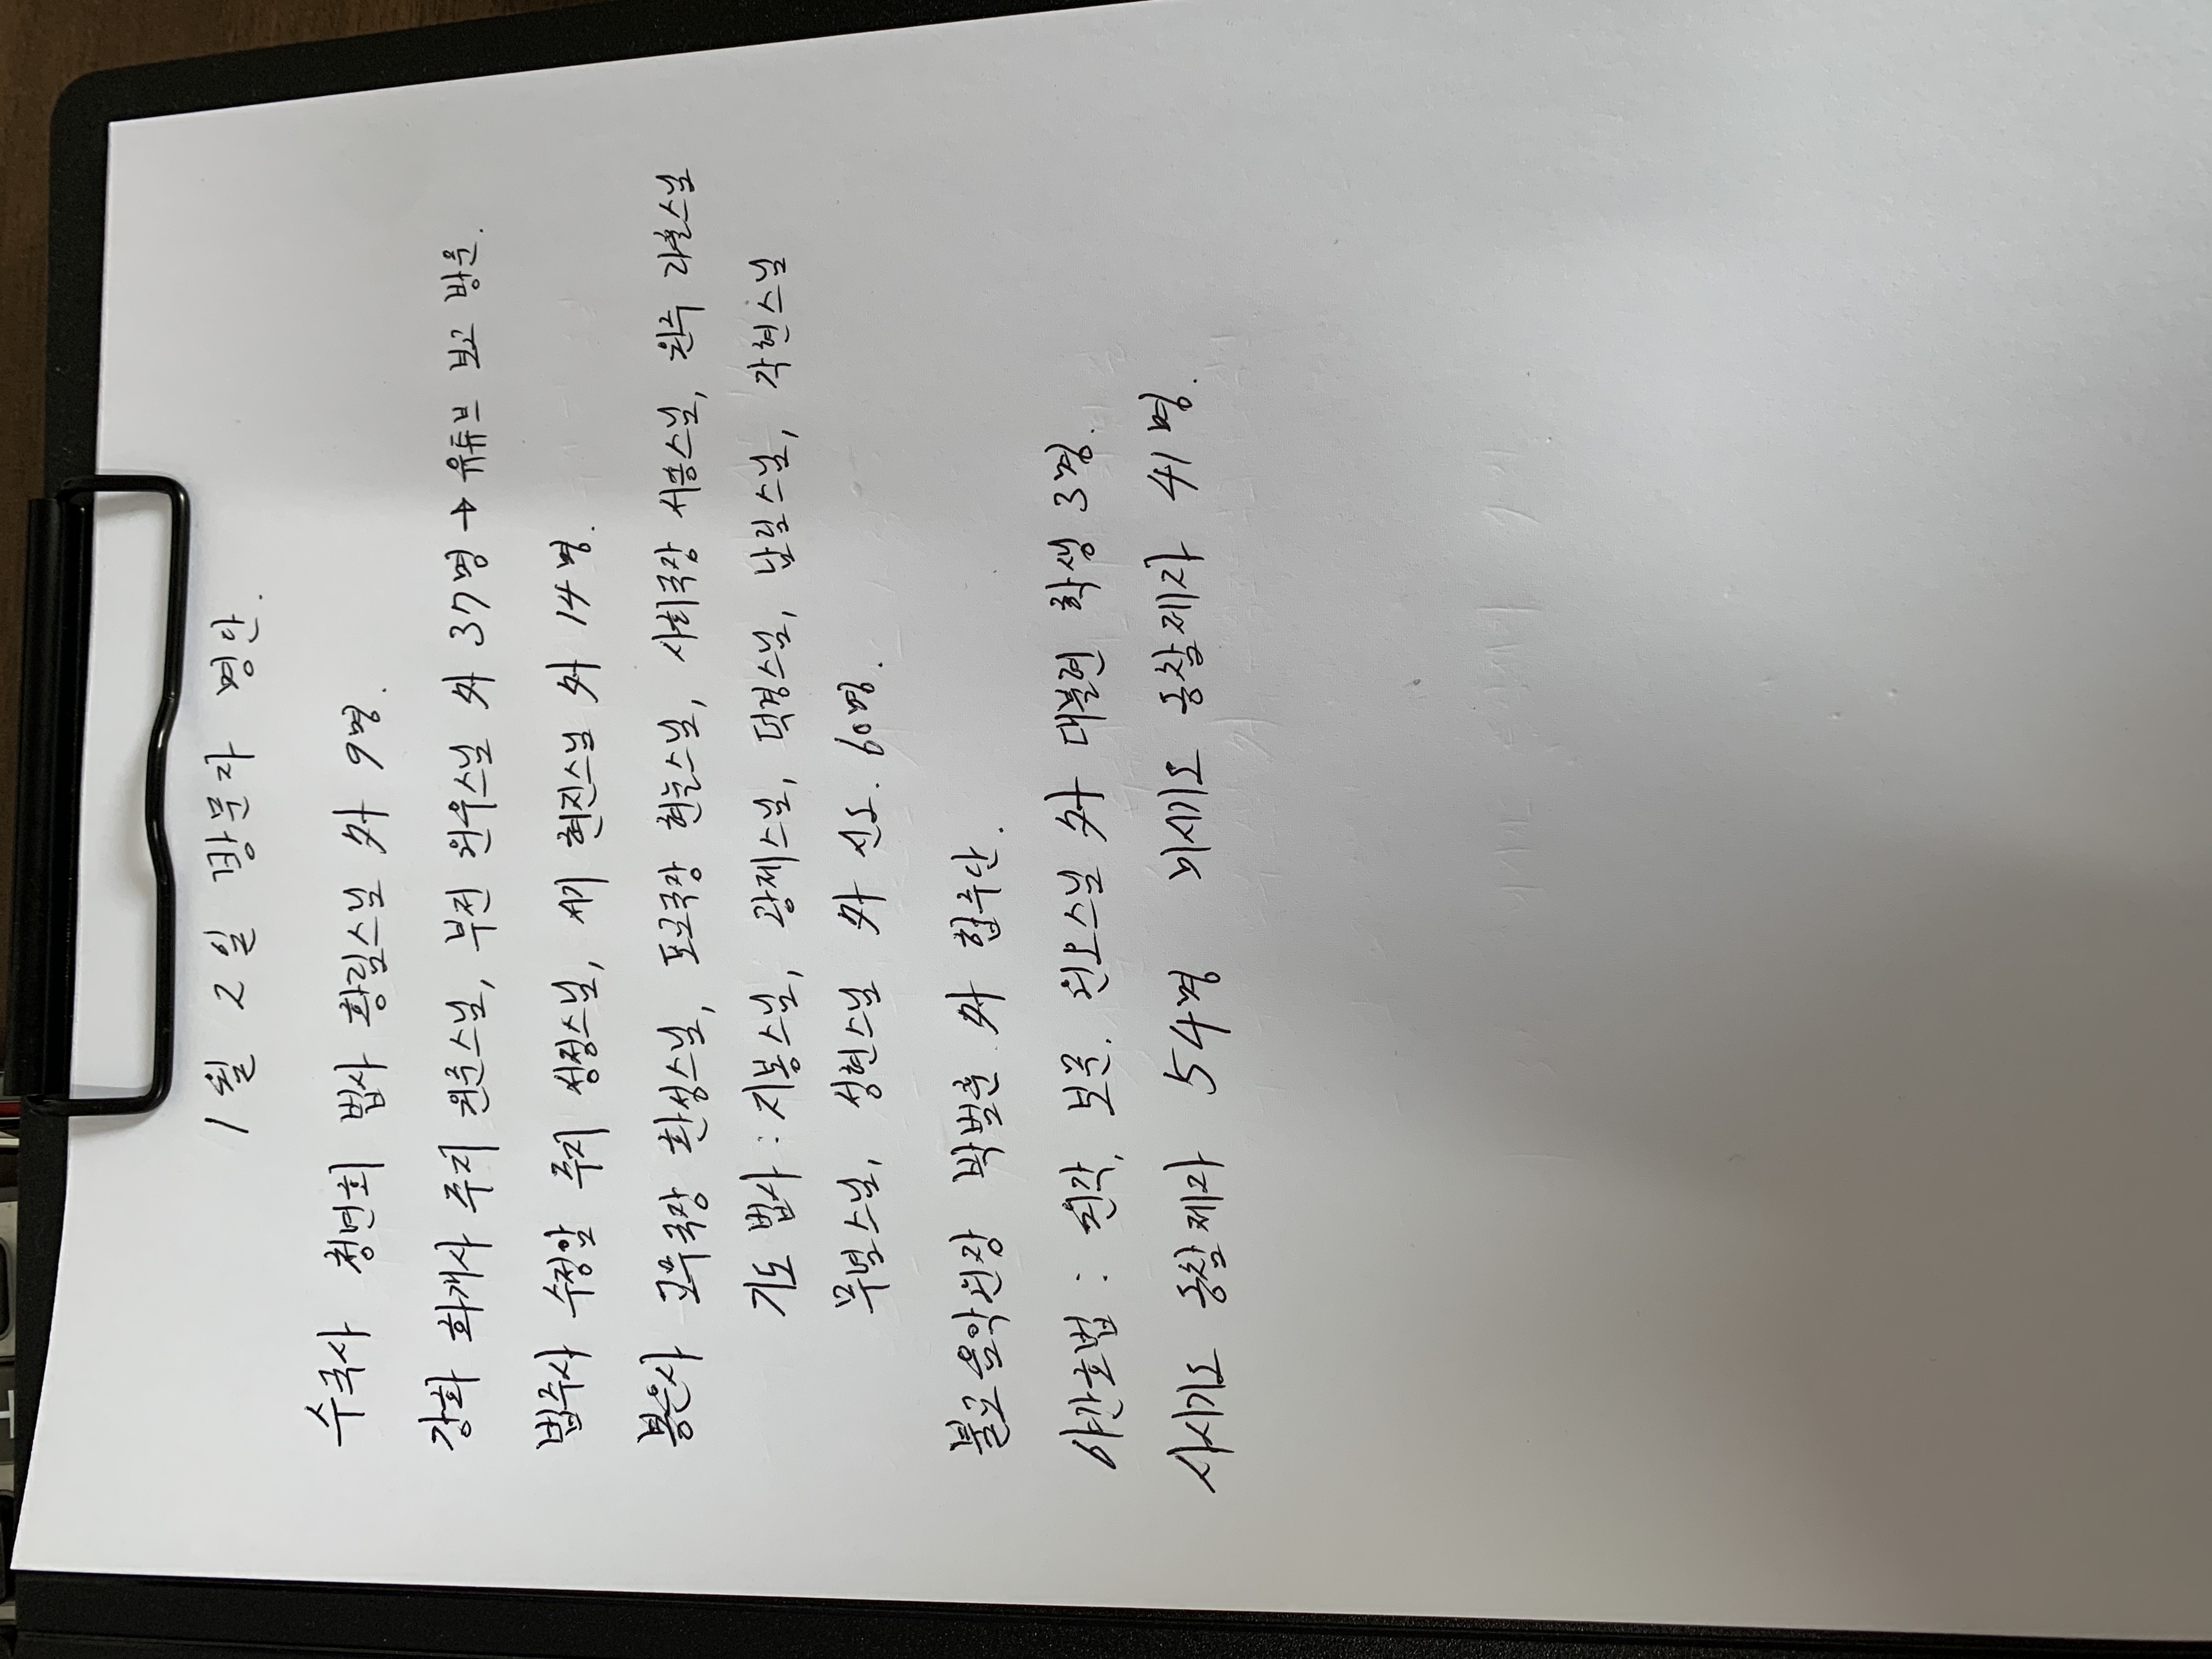 1월 2일 방문자 명단.
수국사 청년회 법사 황림스님 外 9명.
강화 화개사 주지 원춘스님, 부전 원우스님 外 37명 → 유튜브 보고 방문.
법주사 수정암 주지 성정스님, 세지 현진스님 外 14명.
봉은사 교무국장 환성스님, 포교국장 현눌스님, 사회국장 서흥스님, 원주 라훌스님
기도법사 : 지봉스님, 광제스님, 덕경스님, 남림스님, 각현스님
무념스님, 성현스님 外 신도. 60명.
불교음악원장 박범훈 外 합주단.
야간호법 : 원각, 보문. 원오스님 外 대불련 학생 3명.
사시기도 동참제자 54명 미시기도 동참제자 41명.